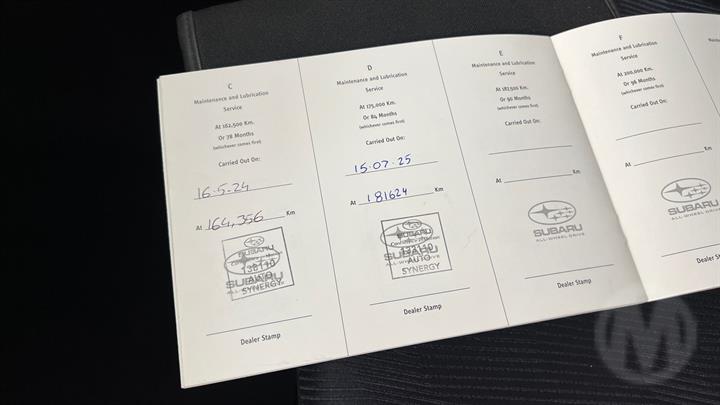 C
Maintenance and Lubrication
Service
At 162,500 Km.
Or 78 Months
(whichever comes first)
Carried Out On:
16-5-24
At 164,356 Km
SUBARU
138110
AUTO
SYNERGY
Dealer Stamp
D
Maintenance and Lubrication
Service
At 175,000 Km.
Or 84 Months
(whichever comes first)
Carried Out On:
15.07.25
At 181624 Km
SUBARU
AUTO
SYNERGY
Dealer Stamp
E
Maintenance and Lubrication
Service
At 187,500 Km.
Or 90 Months
(whichever comes first)
Carried Out On:
At Km
SUBARU
ALL-WHEEL DRIVE
Dealer Stamp
F
Maintenance and Lubrication
Service
At 200,000 Km.
Or 96 Months
(whichever comes first)
Carried Out On:
At Km
SUBARU
ALL-WHEEL DRIVE
Dealer
M